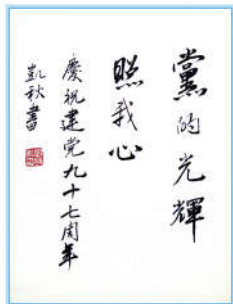 黨的光輝
照我心
慶祝建党九十七周年
凱秋書